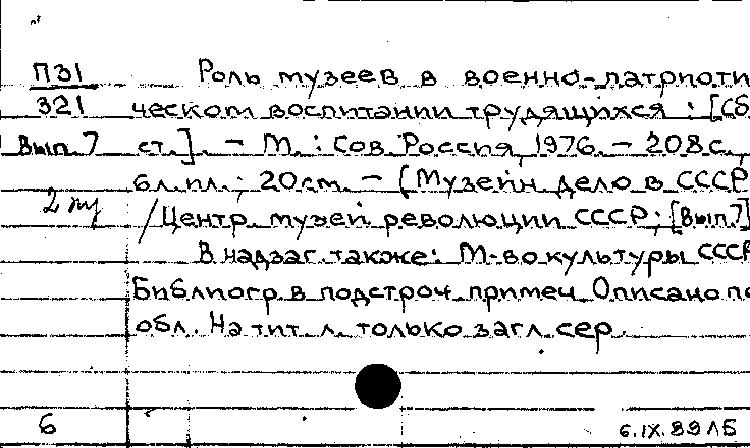 П31 Роль музеев в военно-патриоти
321 ческом воспитании трудящихся : [Сб
Вып. 7 ст.]. – М. : Сов. Россия, 1976. – 208 с.,
6 л. ил.; 20 см. – (Музейн. дело в СССР
/ Центр. музей революции СССР; [Вып. 7]
В надзаг. также: М-во культуры СССР
Библиогр. в подстроч. примеч. Описано по
обл. На тит. л. только загл. сер.
6 6.IX.89 ЛБ